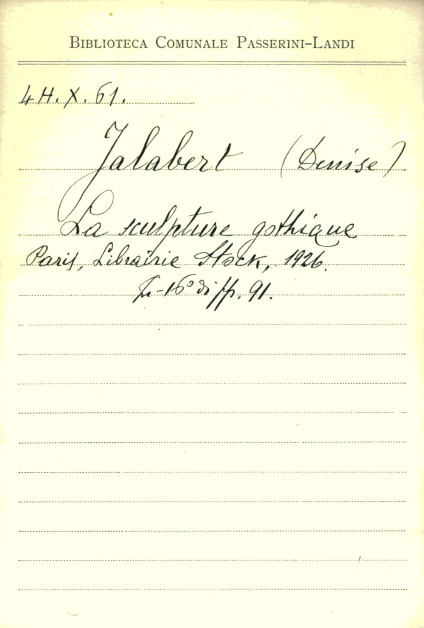 BIBLIOTECA COMUNALE PASSERINI-LANDI
4H.X.61.
Jalabert (Denise)
La sculpture gothique
Paris, Librairie Stock, 1926.
In-16° di pp. 91.